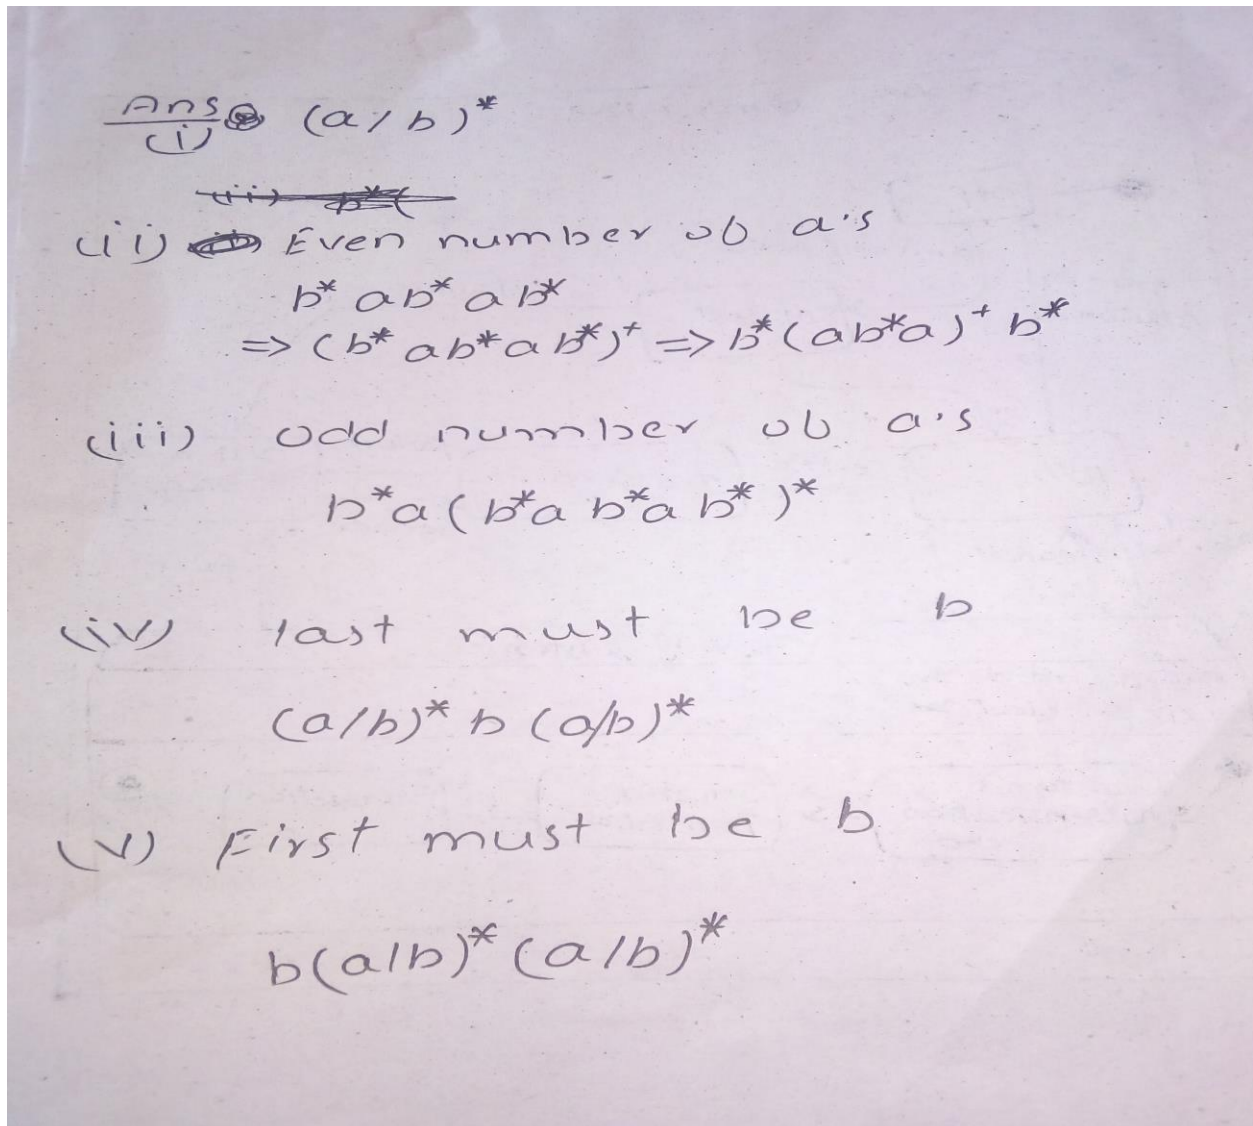 Ans (a/b)*
(i)
(ii) Even number ob a's
b* ab* ab*
=> (b* ab* ab*)+ => b* (ab*a)+ b*
(iii) odd number ob a's
b*a (b*a b*a b*)*
(iv) last must be b
(a/b)* b (a/b)*
(v) First must be b
b(a/b)* (a/b)*